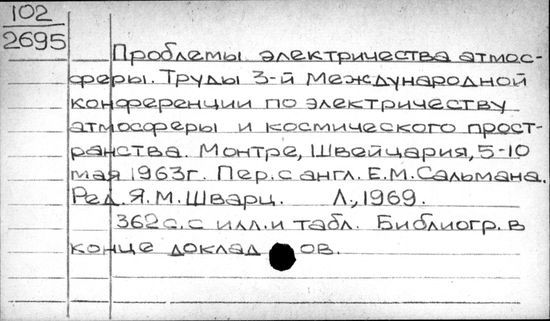 102
2695
Проблемы электричества атмос-
феры. Труды 3-й Международной
конференции по электричеству
атмосферы и космического прост-
ранства. Монтре, Швейцария, 5-10
мая 1963г. Пер. с англ. Е.М. Сальмана.
Ред. Я.М. Шварц. Л., 1969.
362с. с илл. и табл. Библиогр. в
конце доклад ов.